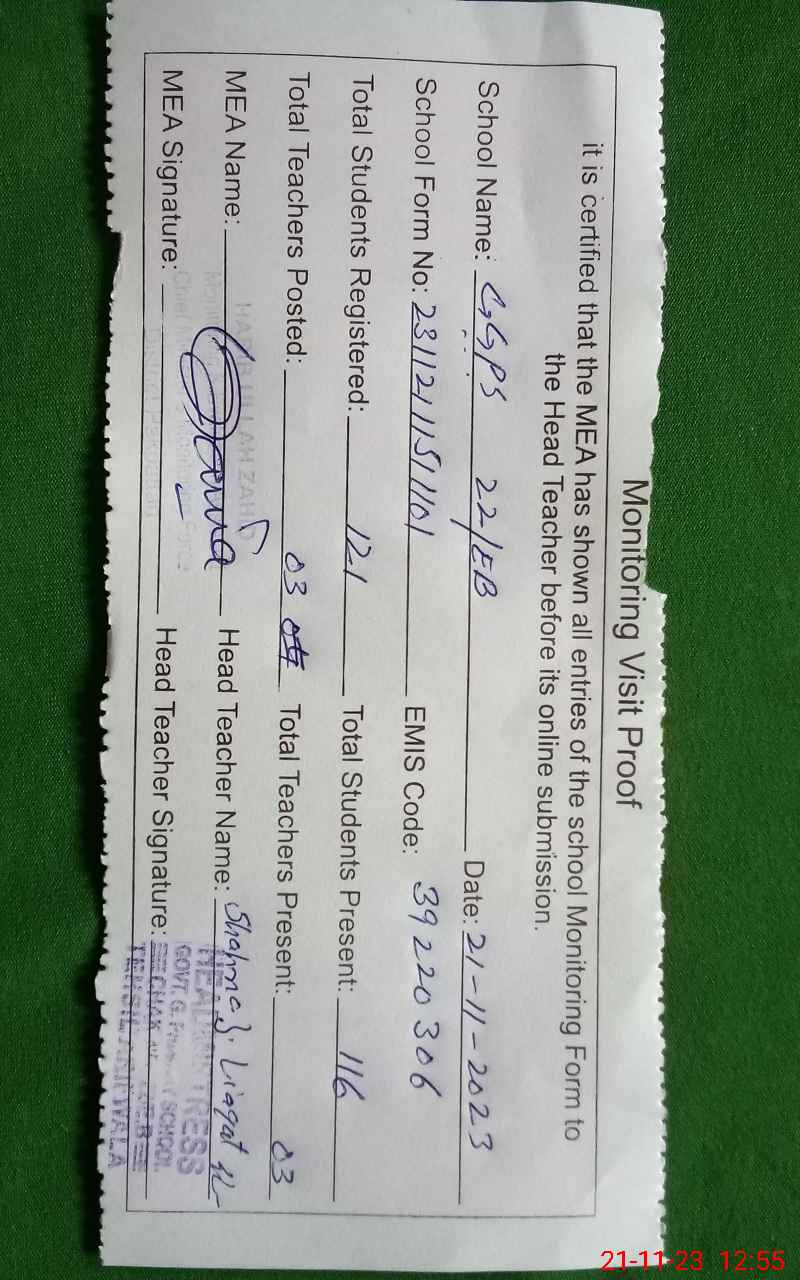 Monitoring Visit Proof
it is certified that the MEA has shown all entries of the school Monitoring Form to
the Head Teacher before its online submission.
School Name: GGPS 22/EB Date: 21-11-2023
School Form No: EMIS Code: 39220306
Total Students Registered: 121 Total Students Present: 116
Total Teachers Posted: 03 Total Teachers Present: 03
MEA Name: Head Teacher Name: Liaqat
MEA Signature: Head Teacher Signature:
HEADMISTRESS
21-11-23 12:55